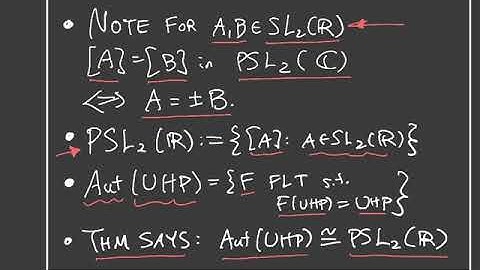 • NOTE FOR A,B ∈ SL₂(ℝ)
[A] = [B] in PSL₂(ℂ)
⟺ A = ± B.
• PSL₂(ℝ) := {[A] : A ∈ SL₂(ℝ)}
• Aut(UHP) = {F FLT s.t.
F(UHP) = UHP}
• THM SAYS: Aut(UHP) ≅ PSL₂(ℝ)